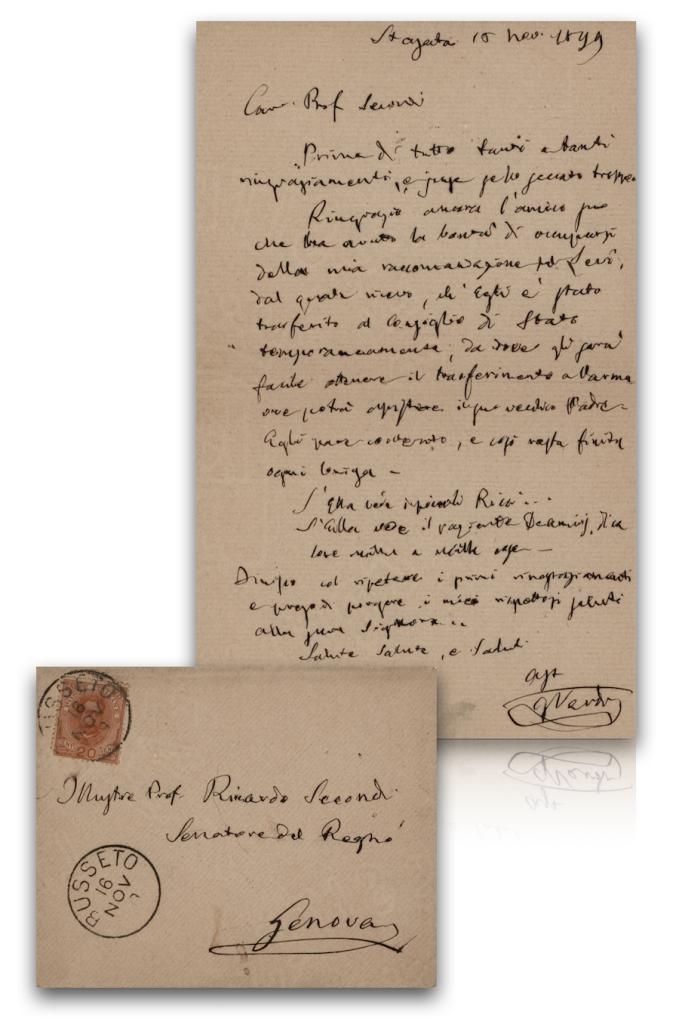 St Agata 15 Nov. 1899
Caro Prof Secondi
Prima di tutto tanti e tanti
ringraziamenti, e troppo
Ringrazio ancora l'amico suo
che ha avuto la bontà di occuparsi
della mia raccomandazione pel Levi,
dal quale ricevo, ch' Egli è stato
trasferito al Consiglio di Stato
temporaneamente, da dove gli sarà
facile ottenere il trasferimento a Parma
ove potrà assistere il suo vecchio Padre
Egli pare contento, e così resta finita
ogni briga –
S'Ella vede Ricci...
S'Ella vede il paziente Deamicis, dica
loro mille e mille cose –
Finisco col ripetere i primi ringraziamenti
e pregodi porgere i miei rispettosi saluti
alla sua Signora..
Salute Salute, e Saluti
aff
GVerdi
BUSSETO
16
NOV
20
Illustre Prof Ricardo Secondi
Senatore del Regno
BUSSETO
16
NOV
Genova